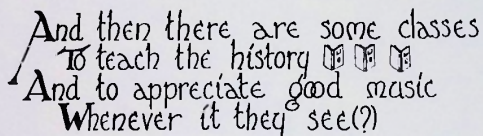 And then there are some classes
To teach the history
And to appreciate good music
Whenever it they see(?)